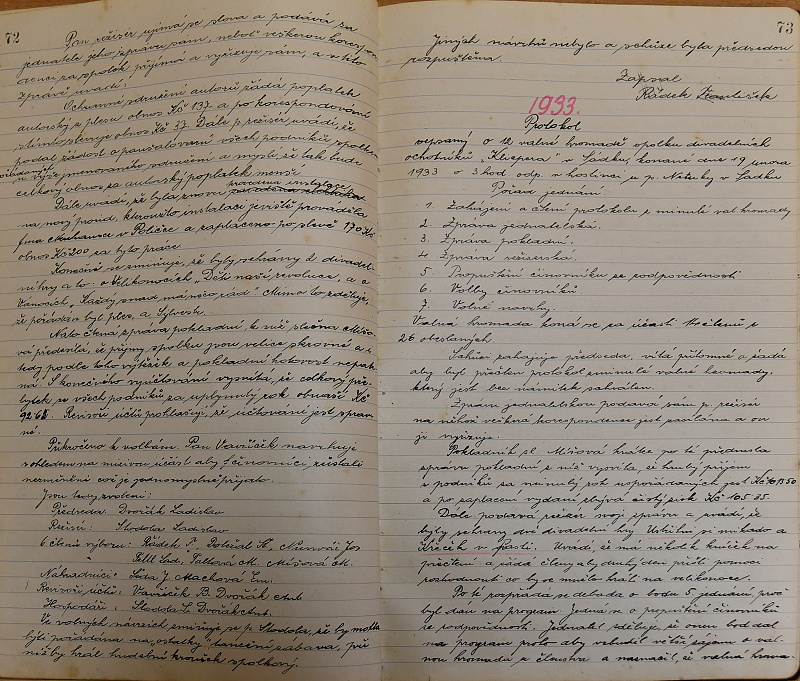 72
Pan režisér ujímá se slova a podává za
jednatele jeho zprávu sám, neboť veškerou korespon
denci za spolek přijímá a vyřizuje sám, a v této
zprávě uvádí:
Ochranné sdružení autorů žádá poplatek
autorský z plesu obnos Kč 137 a po korespondování
obnos Kč 37. Dále p. režisér uvádí, že
podal žádost o paušalování všech podniků spolkem
u výše jmenovaného sdružení a myslí, že tak bude
celkový obnos za autorský poplatek menší
Dále uvádí, že byla znovu prováděna instalace
na nový proud, kteroužto instalaci jeviště prováděla
fma v Poličce a zaplaceno po slevě 190 Kč
obnos Kč 200 za tyto práce
Konečně se zmiňuje, že byly sehrány 2 divadel-
ní hry a to: o Velikonocích „Děti naší revoluce, a o
Vánocích „Každý snad má něco rád" Mimo to sděluje,
že pořádán byl ples, a Sylvestr.
Nato čtena zpráva pokladní, z níž slečna Mišo-
vá předeslala, že příjmy spolku jsou velice skrovné a
tedy podle toho výtěžek a pokladní hotovost nepatr-
ná. Z konečného vyúčtování vysvítá, že celkový pře-
bytek ze všech podniků za uplynulý rok obnáší Kč
Revisoři účtů prohlašují, že účtování jest správ-
né.
Přikročeno k volbám. Pan Vavříček navrhuje
s ohledem na mizivou účast aby činovníci zůstali
nezměněni což je jednomyslně přijato.
Jsou tedy zvoleni:
Předseda: Dvořák Ladislav
Režisér: Stodola Ladislav
6 členů výboru: Řádek F., Doležal St., Nunvář Jos
Lad. Mišová M.
Náhradníci: J. Machová Em.
Revisoři účtů: Vavříček B. Dvořák Ant.
Hospodáři: Stodola L. Dvořák Ant.
Ve volných návrzích zmiňuje se p. Stodola, že by mohla
býti pořádána na „ostatky" taneční zábava, při
níž by hrál hudební kroužek spolkový.
73
Jiných návrhů nebylo a schůze byla předsedou
rozpuštěna.
Zapsal
Řádek
1933.
Protokol
sepsaný o 12 valné hromadě spolku divadelních
ochotníků „Klicpera" v Sádku, konané dne 19 února
1933 o 3 hod odp. v hostinci u p. v Sádku
Pořad jednání
1. Zahájení a čtení protokolu z minulé val hromady
2. Zpráva jednatelská.
3. Zpráva pokladní.
4 Zpráva režisérská.
5 Propuštění činovníků ze zodpovědnosti
6. Volby činovníků.
7. Volné návrhy.
Valná hromada koná se za účasti členů z
26 obeslaných.
Schůzi zahajuje předseda, vítá přítomné a žádá
aby byl přečten protokol z minulé valné hromady,
který jest bez námitek schválen.
Zprávu jednatelskou podává sám p. režisér
na něhož veškerá korespondence jest zasílána a on
ji vyřizuje.
Pokladník sl. Mišová krátce po té přednesla
zprávu pokladní z níž vysvítá, že hrubý příjem
z podniků za minulý rok uspořádaných jest Kč
a po zaplacení vydání zbývá čistý zisk Kč 105 35.
Dále podává režisér svoji zprávu a uvádí, že
byly sehrány dvě divadelní hry Ustřihni si mikádo a
Křeček v pasti. Uvádí, že má několik knížek na
přečtení a žádá členy aby druhý den přišli pomoci
rozhodnouti co by se mělo hráti na velikonoce.
Po té rozpředla se debata o bodu 5 jednání, proč
byl dán na program. Jedná se o propuštění činovníků
ze zodpovědnosti. Jednatel sděluje, že onen bod dal
na program proto aby vzbudil větší zájem o val-
nou hromadu u členstva a naznačil, že valná hroma-